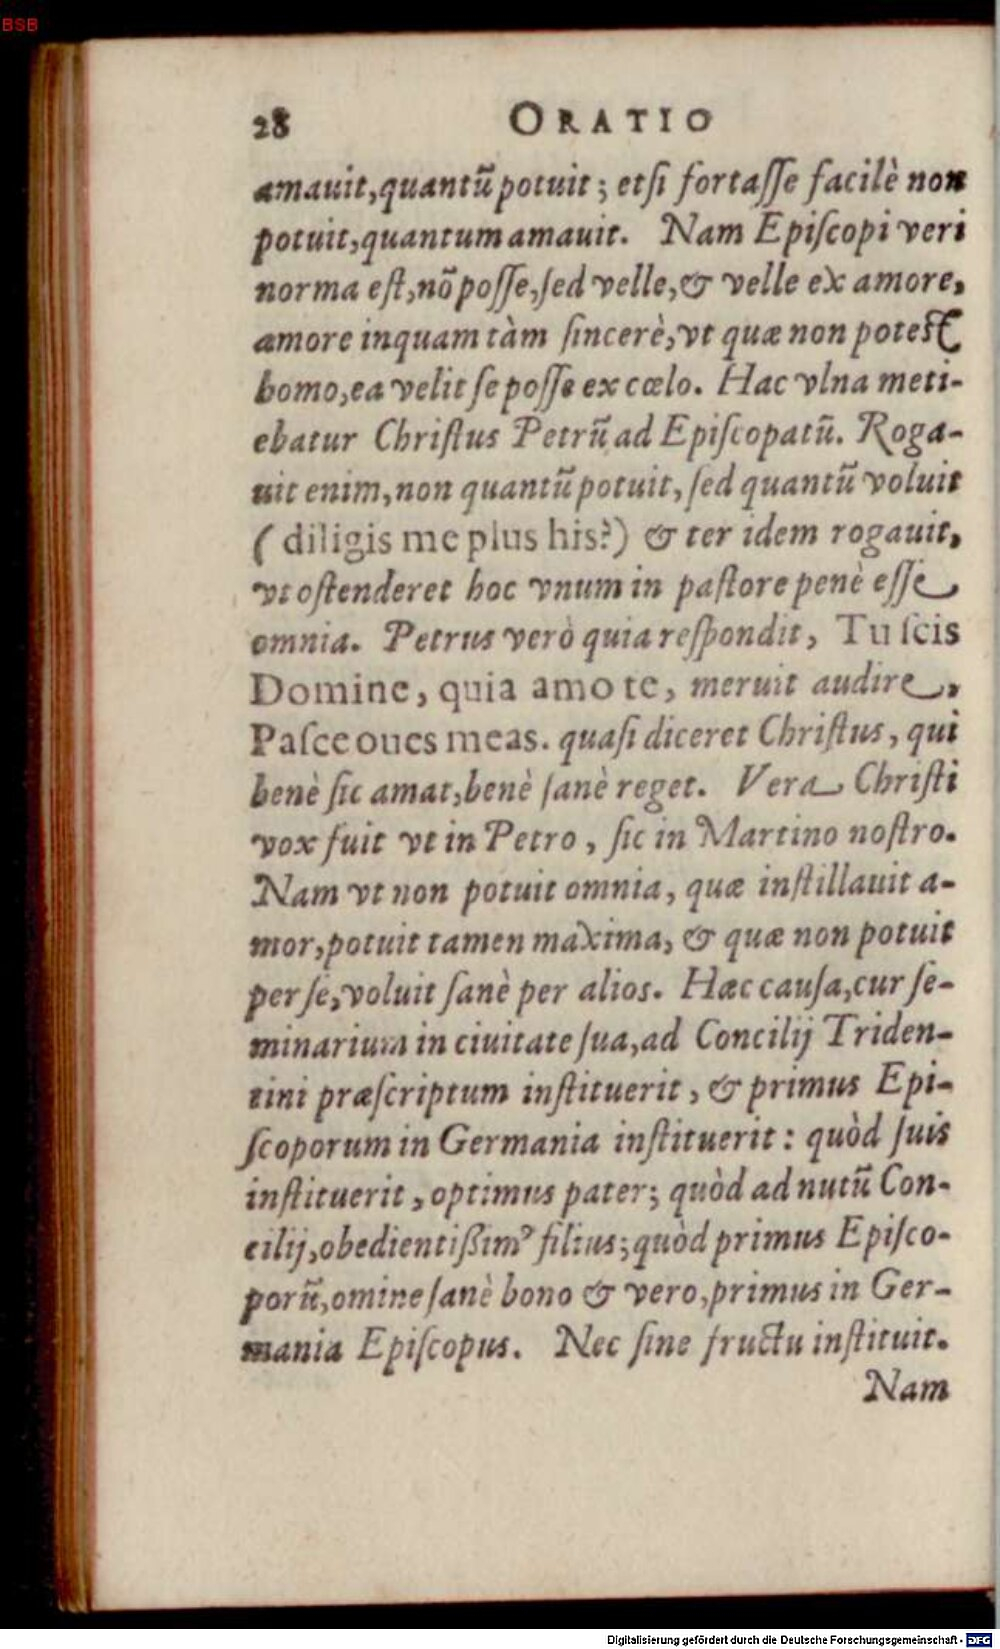 BSB
28 ORATIO
amauit, quantũ potuit; etſi fortaſſe facilè non
potuit, quantum amauit. Nam Epiſcopi veri
norma eſt, nõ poſſe, ſed velle, & velle ex amore,
amore inquam tàm ſincerè, vt quæ non poteſt
homo, ea velit ſe poſſe ex cœlo. Hac vlna meti-
ebatur Chriſtus Petrũ ad Epiſcopatũ. Roga-
uit enim, non quantũ potuit, ſed quantũ voluit
(diligis me plus his?) & ter idem rogauit,
vt oſtenderet hoc vnum in paſtore penè eſſe
omnia. Petrus verò quia reſpondit, Tu ſcis
Domine, quia amo te, meruit audire,
Paſce oues meas. quaſi diceret Chriſtus, qui
benè ſic amat, benè ſanè reget. Vera Chriſti
vox fuit vt in Petro, ſic in Martino noſtro.
Nam vt non potuit omnia, quæ inſtillauit a-
mor, potuit tamen maxima, & quæ non potuit
per ſe, voluit ſanè per alios. Hæc cauſa, cur ſe-
minarium in ciuitate ſua, ad Concilij Triden-
tini præſcriptum inſtituerit, & primus Epi-
ſcoporum in Germania inſtituerit: quòd ſuis
inſtituerit, optimus pater; quòd ad nutũ Con-
cilij, obedientißimꝰ filius; quòd primus Epiſco-
porũ, omine ſanè bono & vero, primus in Ger-
mania Epiſcopus. Nec ſine fructu inſtituit.
Nam
Digitalisierung gefördert durch die Deutsche Forschungsgemeinschaft - DFG